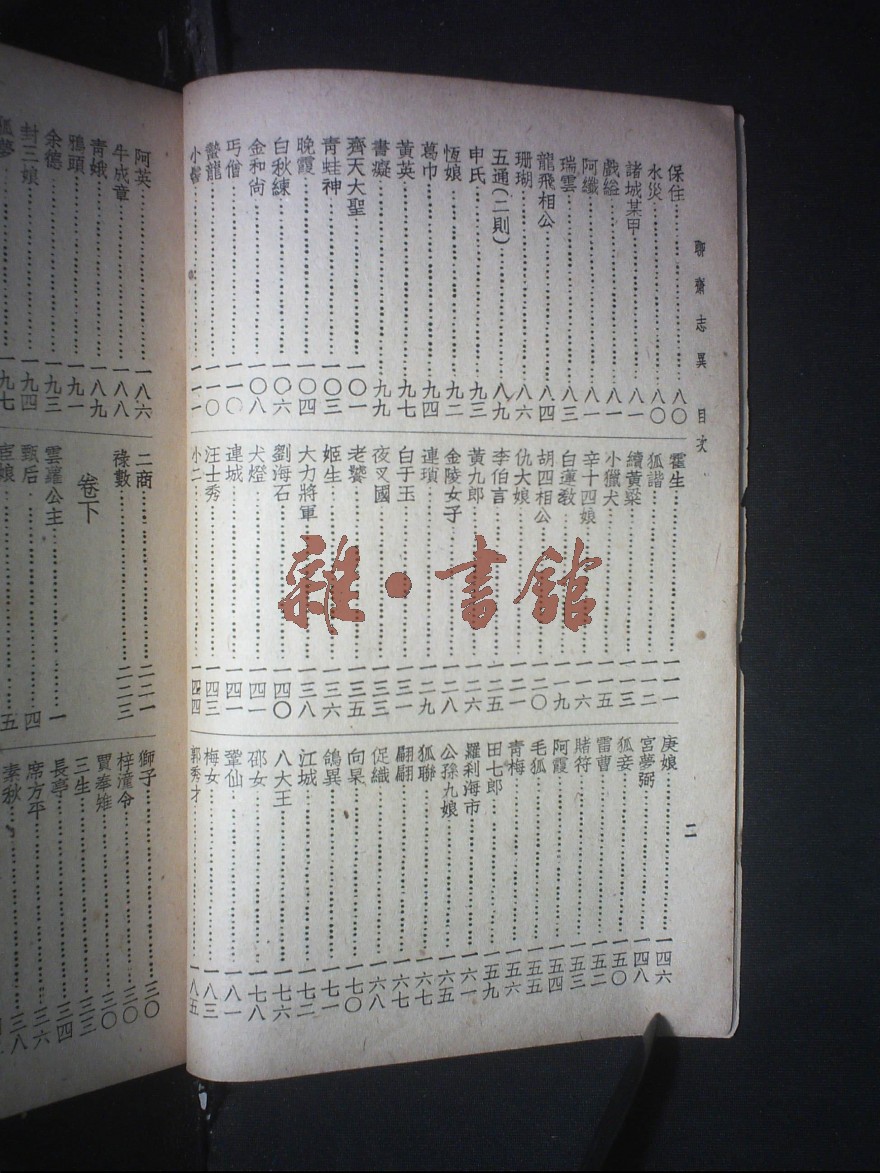 聊齋志異 目次
二
保住……八〇
水災……八〇
諸城某甲……八一
戲縊……八一
阿纖……八一
瑞雲……八三
龍飛相公……八四
珊瑚……八六
五通(二則)……八九
申氏……九三
恆娘……九二
葛巾……九四
黃英……九七
書癡……九九
齊天大聖……一〇一
青蛙神……一〇三
晚霞……一〇四
白秋練……一〇六
金和尙……一〇八
丐僧……一一〇
蟄龍……一一〇
小……一一一
霍生……一一一
狐諧……一一二
續黃粱……一一三
小獵犬……一一五
辛十四娘……一一六
白蓮敎……一一九
胡四相公……一二〇
仇大娘……一二一
李伯言……一二五
黃九郎……一二六
金陵女子……一二八
連瑣……一二九
白于玉……一三一
夜叉國……一三三
老饕……一三五
姬生……一三六
大力將軍……一三八
劉海石……一四〇
犬燈……一四一
連城……一四一
汪士秀……一四三
小二……一四四
庚娘……一四六
宮夢弼……一四八
狐妾……一五〇
雷曹……一五二
賭符……一五三
阿霞……一五四
毛狐……一五五
青梅……一五六
田七郎……一五九
羅刹海市……一六一
公孫九娘……一六五
狐聯……一六七
翩翩……一六七
促織……一六八
向杲……一七〇
鴿異……一七一
江城……一七二
八大王……一七六
邵女……一七八
鞏仙……一八一
梅女……一八三
郭秀才……一八五
阿英……一八六
牛成章……一八八
青娥……一八九
鴉頭……一九一
余德……一九三
封三娘……一九四
狐夢……一九七
二商……二二一
祿數……二二三
卷下
雲羅公主……一
甄后……四
宦娘……五
獅子……三〇
梓潼令……三〇
賈奉雉……三〇
三生……三三
長亭……三四
席方平……三六
素秋……三八
雜·書館